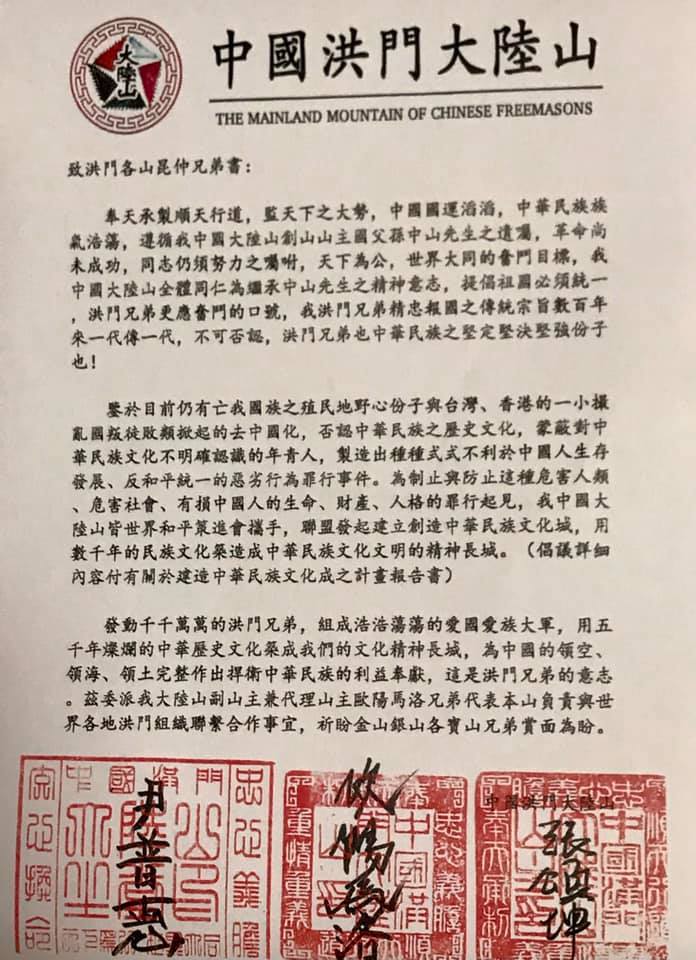 大陸山
中國洪門大陸山
THE MAINLAND MOUNTAIN OF CHINESE FREEMASONS
致洪門各山昆仲兄弟書：
奉天承製順天行道，監天下之大勢，中國國運滔滔，中華民族族
氣浩蕩，遵循我中國大陸山創山山主國父孫中山先生之遺囑，革命尚
未成功，同志仍須努力之囑咐，天下為公，世界大同的奮鬥目標，我
中國大陸山全體同仁為繼承中山先生之精神意志，提倡祖國必須統一
，洪門兄弟更應奮鬥的口號，我洪門兄弟精忠報國之傳統宗旨數百年
來一代傳一代，不可否認，洪門兄弟也中華民族之堅定堅決堅強份子
也！
鑒於目前仍有亡我國族之殖民地野心份子與台灣、香港的一小撮
亂國叛徒敗類掀起的去中國化，否認中華民族之歷史文化，蒙蔽對中
華民族文化不明確認識的年青人，製造出種種式式不利於中國人生存
發展、反和平統一的惡劣行為罪行事件。為制止與防止這種危害人類
、危害社會、有損中國人的生命、財產、人格的罪行起見，我中國大
陸山皆世界和平策進會攜手，聯盟發起建立創造中華民族文化城，用
數千年的民族文化築造成中華民族文化文明的精神長城。（倡議詳細
內容付有關於建造中華民族文化成之計畫報告書）
發動千千萬萬的洪門兄弟，組成浩浩蕩蕩的愛國愛族大軍，用五
千年燦爛的中華歷史文化築成我們的文化精神長城，為中國的領空、
領海、領土完整作出捍衛中華民族的利益奉獻，這是洪門兄弟的意志
。茲委派我大陸山副山主兼代理山主歐陽馬洛兄弟代表本山負責與世
界各地洪門組織聯繫合作事宜，祈盼金山銀山各寶山兄弟賞面為盼。
中國洪門大陸山
張鎮坤